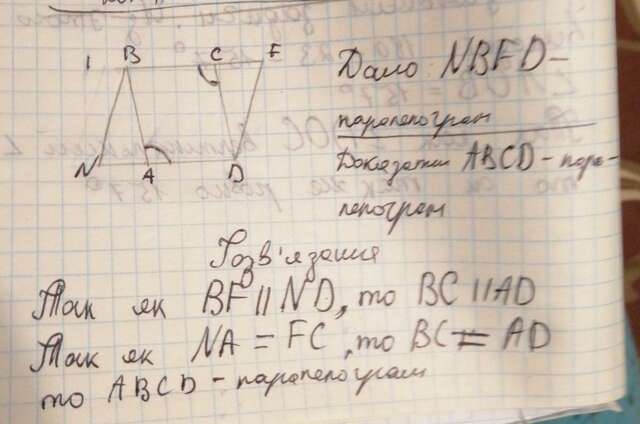 1 B C F
N A D
Дано: NBFD -
паралелограм
Доказати ABCD - пара-
лелограм
Розв'язання
Так як BF || ND, то BC || AD
Так як NA = FC, то BC = AD
то ABCD - паралелограм